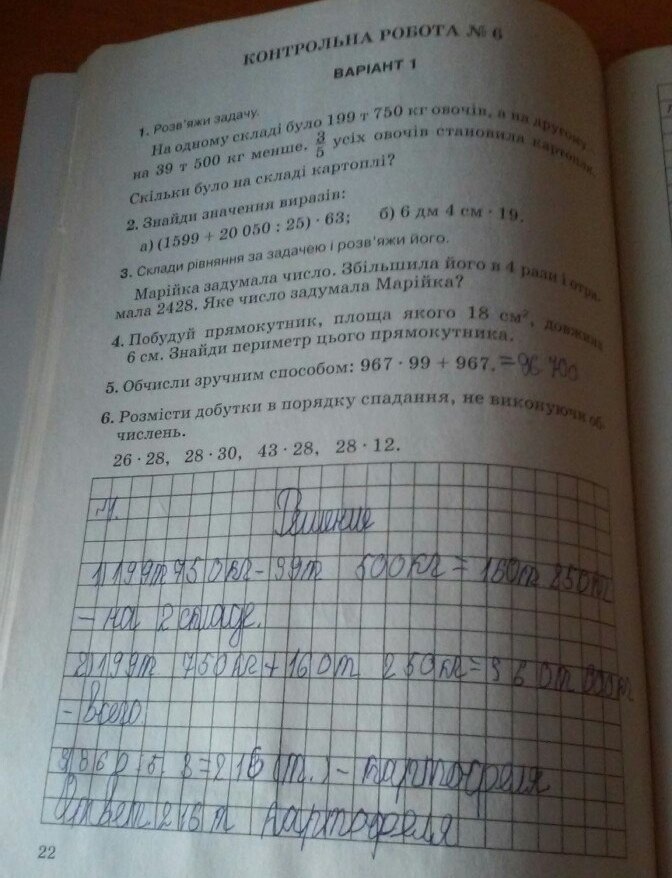 КОНТРОЛЬНА РОБОТА № 6
ВАРІАНТ 1
1. Розв'яжи задачу.
На одному складі було 199 т 750 кг овочів, а на другому
на 39 т 500 кг менше. 3/5 усіх овочів становила картопля.
Скільки було на складі картоплі?
2. Знайди значення виразів:
а) (1599 + 20 050 : 25) · 63; б) 6 дм 4 см · 19.
3. Склади рівняння за задачею і розв'яжи його.
Марійка задумала число. Збільшила його в 4 рази і отри-
мала 2428. Яке число задумала Марійка?
4. Побудуй прямокутник, площа якого 18 см², довжина
6 см. Знайди периметр цього прямокутника.
5. Обчисли зручним способом: 967 · 99 + 967. = 96 700
6. Розмісти добутки в порядку спадання, не виконуючи об-
числень.
26 · 28, 28 · 30, 43 · 28, 28 · 12.
№1. Решение
1) 199т 750кг - 39т 500кг = 160т 250кг
- на 2 складе.
2) 199т 750кг + 160т 250кг = 360т 000кг
- Всего.
3) 360 : 5 · 3 = 216 (т.) - картофеля
Ответ: 216 т картофеля
22